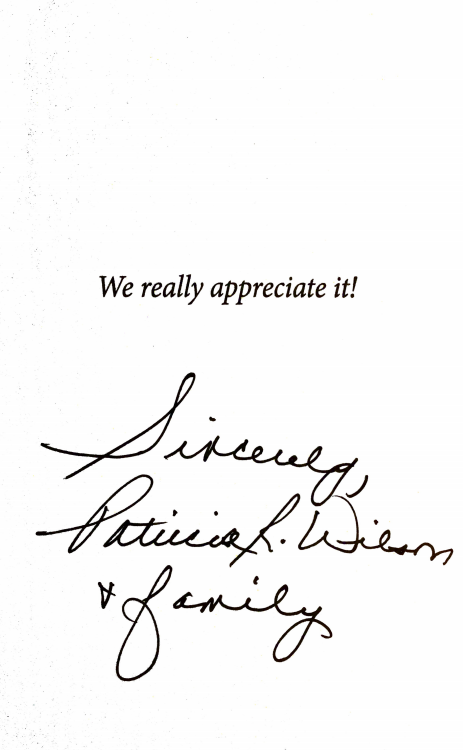 We really appreciate it!
Sincerely,
Patricia L. Wilson
& family